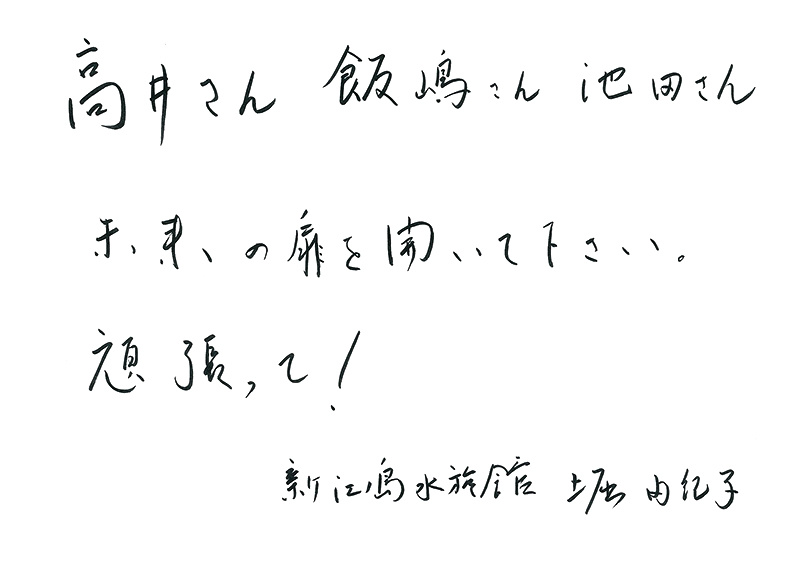 高井さん 飯嶋さん 池田さん
未来の扉を開いて下さい。
頑張って!
新江ノ島水族館 堀 由紀子